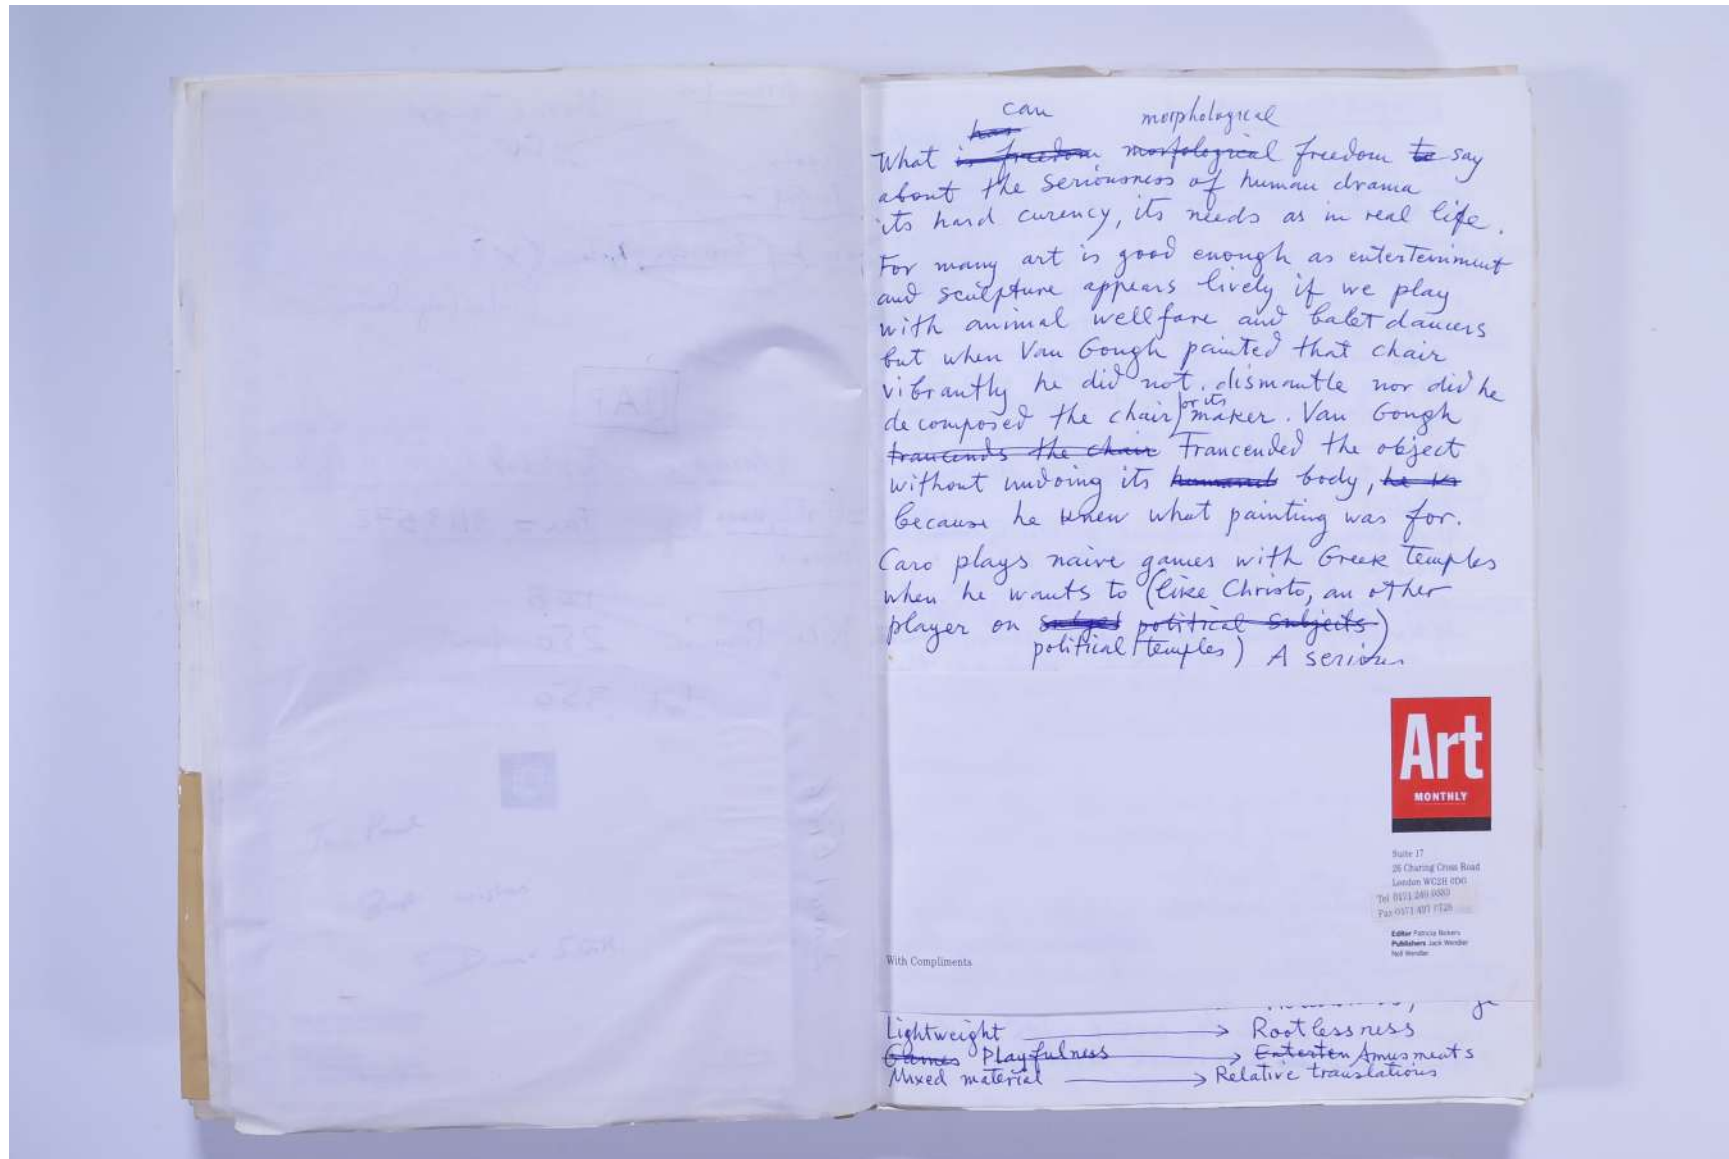 can morphological
has
What is freedom morfological freedom to say
about the seriousness of human drama
its hard curency, its needs as in real life.
For many art is good enough as enterteinment
and sculpture appears lively if we play
with animal wellfare and balet dancers
but when Van Gough painted that chair
vibrantly he did not dismantle nor did he
decomposed the chair or its maker. Van Gough
trancends the chair Trancended the object
without undoing its body, he
because he knew what painting was for.
Caro plays naive games with Greek temples
when he wants to (like Christo, an other
player on political subjects)
political temples) A serious
Art
MONTHLY
Suite 17
26 Charing Cross Road
London WC2H 0DG
Tel 0171 240 0389
Fax 0171 497 0726
Editor Patricia Bickers
Publishers Jack Wendler
Nell Wendler
With Compliments
Lightweight → Rootlessness
Games Playfulness → Enterten Amusmeats
Mixed material → Relative translations